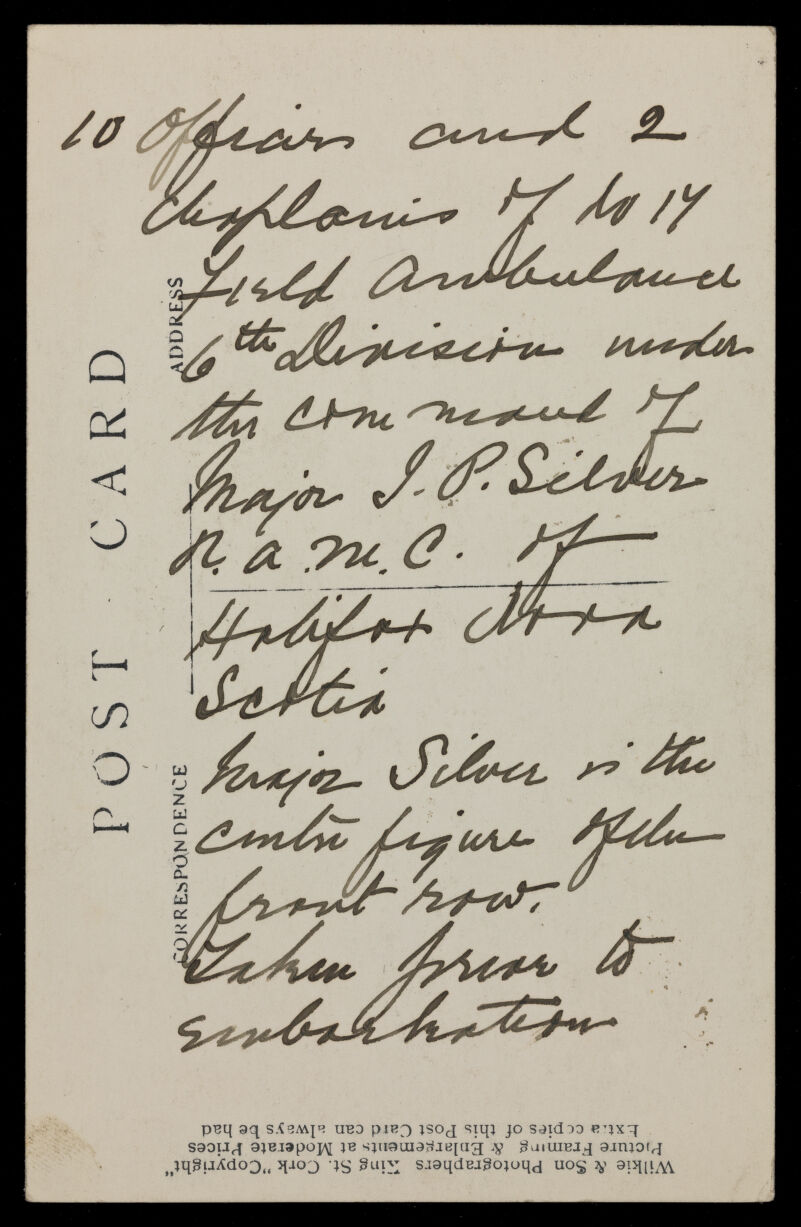 10 Officers and 2
Chaplains of No 17
Field Ambulance
6th Division under
the command of
Major J. P. Silver
R.A.M.C. of
Halifax Nova
Scotia
Major Silver is the
centre figure of the
front row.
Taken prior to
embarkation
POST CARD
ADDRESS
CORRESPONDENCE
Wilkie & Son Photographers King St. Cork "Copyright"
Picture Framing & Enlargements at Moderate Prices
Extra copies of this Post Card can always be had